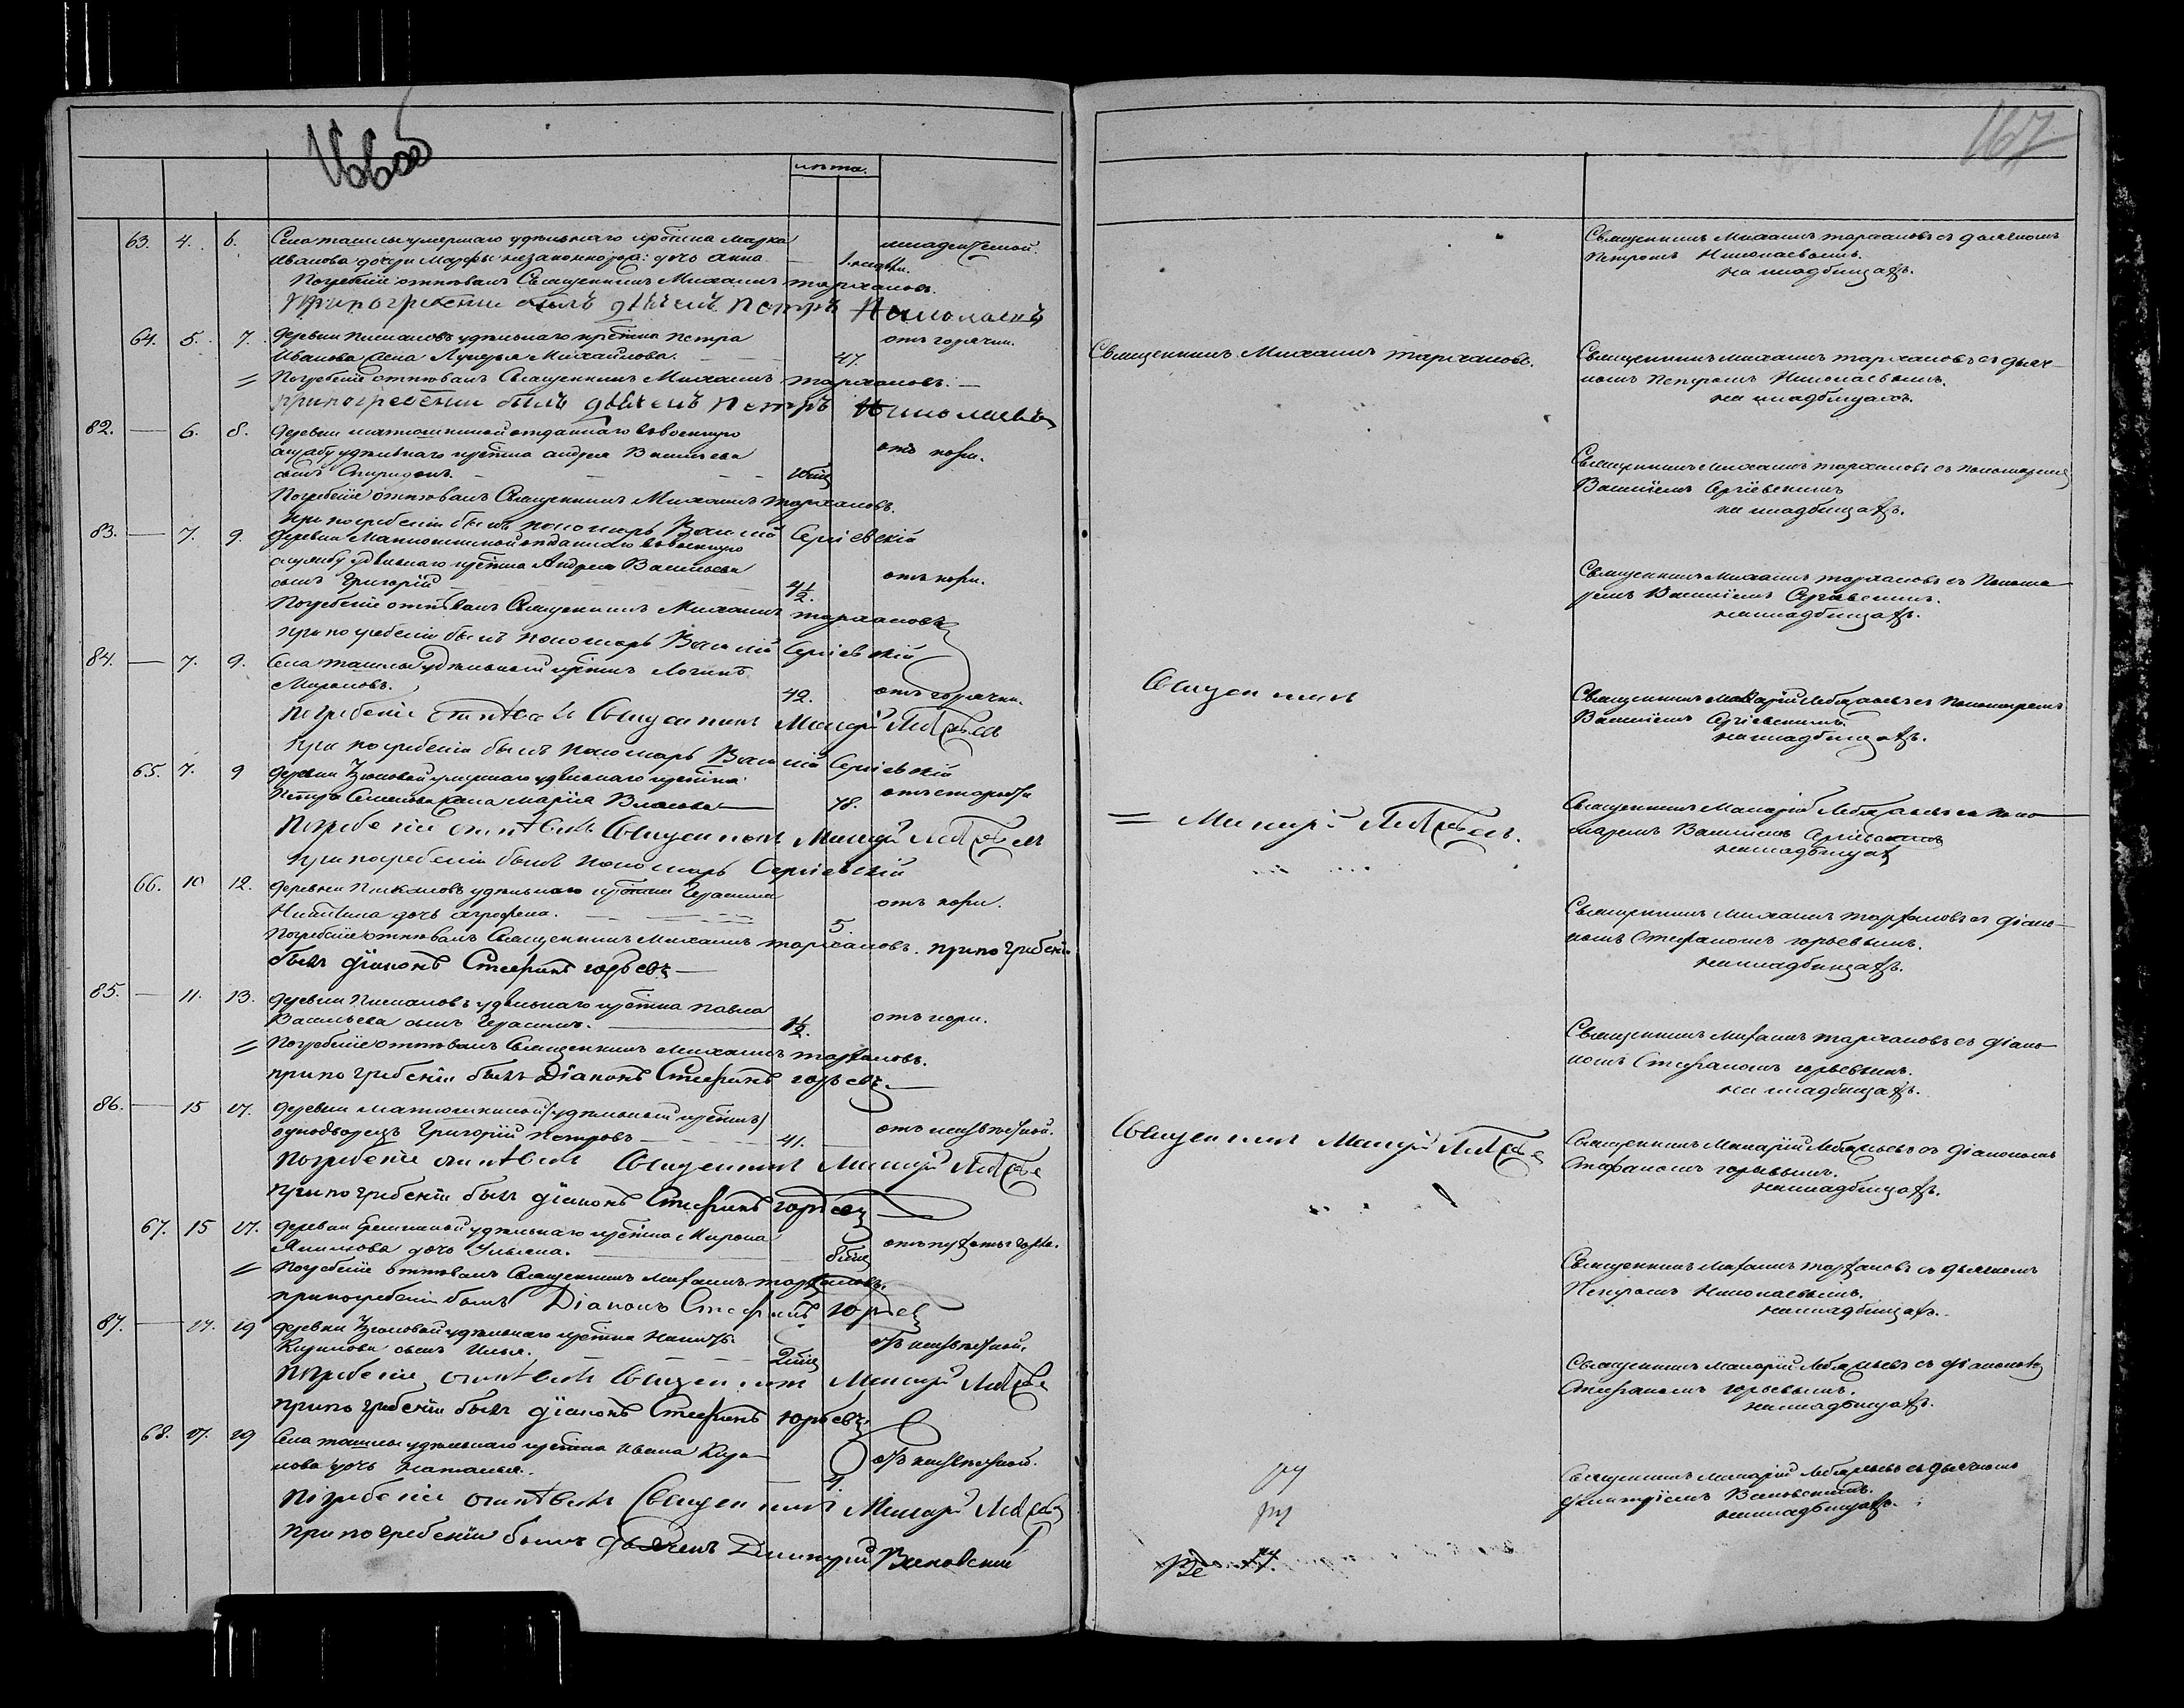 166об
167
лѣта.
63. 4. 6. Села ташлы умершаго удѣльнаго крестьна Марка
Иванова дочери Марѳы незаконнорож: дочь Анна — 1. недѣли. младенческой.
Погребеніе отпѣвалъ Священникъ Михаилъ тарханов.
При погребеніи былъ дьячекъ Петръ Николаевъ
Священникъ Михаилъ тархановъ съ дьячкомъ
Петромъ Николаевымъ.
на кладбищахъ.
64. 5. 7. Деревни удѣльнаго крестьна Петра
Иванова жена Лукерья Михайлова. 47. отъ горячки.
= Погребеніе отпѣвалъ Священникъ Михаилъ тархановъ. —
при погребеніи былъ дьячекъ Петръ Николаевъ
Священникъ Михаилъ тархановъ.
Священникъ михаилъ тархановъ съ дьяч-
комъ Петромъ Николаевымъ.
на кладбищахъ.
82. — 6. 8. Деревни матюшкиной отданнаго въ военную
службу удѣльнаго крестьна андрея Васильева
сынъ Спиридонъ. отъ кори.
Погребеніе отпѣвалъ Священникъ Михаилъ тархановъ.
при погребеніи былъ пономарь Василій Сергіевскій
Священникъ Михаилъ тархановъ съ пономаремъ
Василіемъ Сергіевскимъ
на кладбищахъ.
83. — 7. 9. Деревни Матюшкиной отданнаго въ военную
службу удѣльнаго крестьна Андрея Васильева
сынъ Григорій 4½. отъ кори.
Погребеніе отпѣвалъ Священникъ Михаилъ тархановъ
при погребеніи былъ пономарь Василій Сергіевскій
Священникъ Михаилъ тархановъ съ Понома-
ремъ Василіемъ Сергіевскимъ.
на кладбищахъ.
84. — 7. 9. Села ташлы удѣльный крестьнъ Логинъ
Мироновъ. 42. отъ горячки.
Погребеніе отпѣвалъ Священникъ Макарій
при погребеніи былъ пономарь Василій Сергіевскій
Священникъ
Священникъ Макарій съ Пономаремъ
Василіемъ Сергіевскимъ.
на кладбищахъ.
65. 7. 9 Деревни умершаго удѣльнаго крестьна
Петра Семенова жена марія Власова — 78. отъ старости
Погребеніе отпѣвалъ Священникъ Макарій
при погребеніи былъ пономарь Сергіевскій
= Макарій
Священникъ Макарій съ поно-
маремъ Василіемъ Сергіевскимъ
на кладбищахъ
66. 10 12. Деревни удѣльнаго крестьна Герасима
Никитина дочь агрофена. 5. отъ кори.
Погребеніе отпѣвалъ Священникъ Михаилъ тархановъ. при погребеніи
былъ діаконъ Стефанъ юрьевъ —
Священникъ Михаилъ тархановъ съ діако-
номъ Стефаномъ юрьевымъ.
на кладбищахъ.
85. — 11. 13. Деревни удѣльнаго крестьна павла
Васильева сынъ Герасимъ. — 1½. отъ кори.
= Погребеніе отпѣвалъ Священникъ Михаилъ тархановъ.
при погребеніи былъ Діаконъ Стефанъ юрьевъ. —
Священникъ Михаилъ тархановъ съ діако-
номъ Стефаномъ юрьевымъ.
на кладбищахъ.
86. — 15 17. Деревни матюшкиной (удѣльный крестьнъ)
однодворецъ Григорій Петровъ — 41. отъ неизвѣстной.
Погребеніе отпѣвалъ Священникъ Макарій
при погребеніи былъ діаконъ Стефанъ юрьевъ
Священникъ Макарій
Священникъ Макарій съ діакономъ
Стефаномъ юрьевымъ.
на кладбищахъ.
67. 15 17. Деревни удѣльнаго крестьна Мирона
Якимова дочь Ульяна.
= Погребеніе отпѣвалъ Священникъ Михаилъ тархановъ.
при погребеніи былъ Діаконъ Стефанъ Юрьевъ
Священникъ Михаилъ тархановъ съ дьячкомъ
Петромъ Николаевымъ.
на кладбищахъ.
87. — 17. 19 Деревни удѣльнаго крестьна
сынъ Илья. отъ неизвѣстной.
Погребеніе отпѣвалъ Священникъ Макарій
при погребеніи былъ діаконъ Стефанъ юрьевъ
Священникъ Макарій съ діакономъ
Стефаномъ юрьевымъ.
на кладбищахъ.
68. 17. 19 Села ташлы удѣльнаго крестьна Ивана
дочь Наталья. отъ неизвѣстной.
Погребеніе отпѣвалъ Священникъ Макарій
при погребеніи былъ дьячекъ Димитрій
Священникъ Макарій съ дьячкомъ
Димитріемъ
на кладбищахъ.